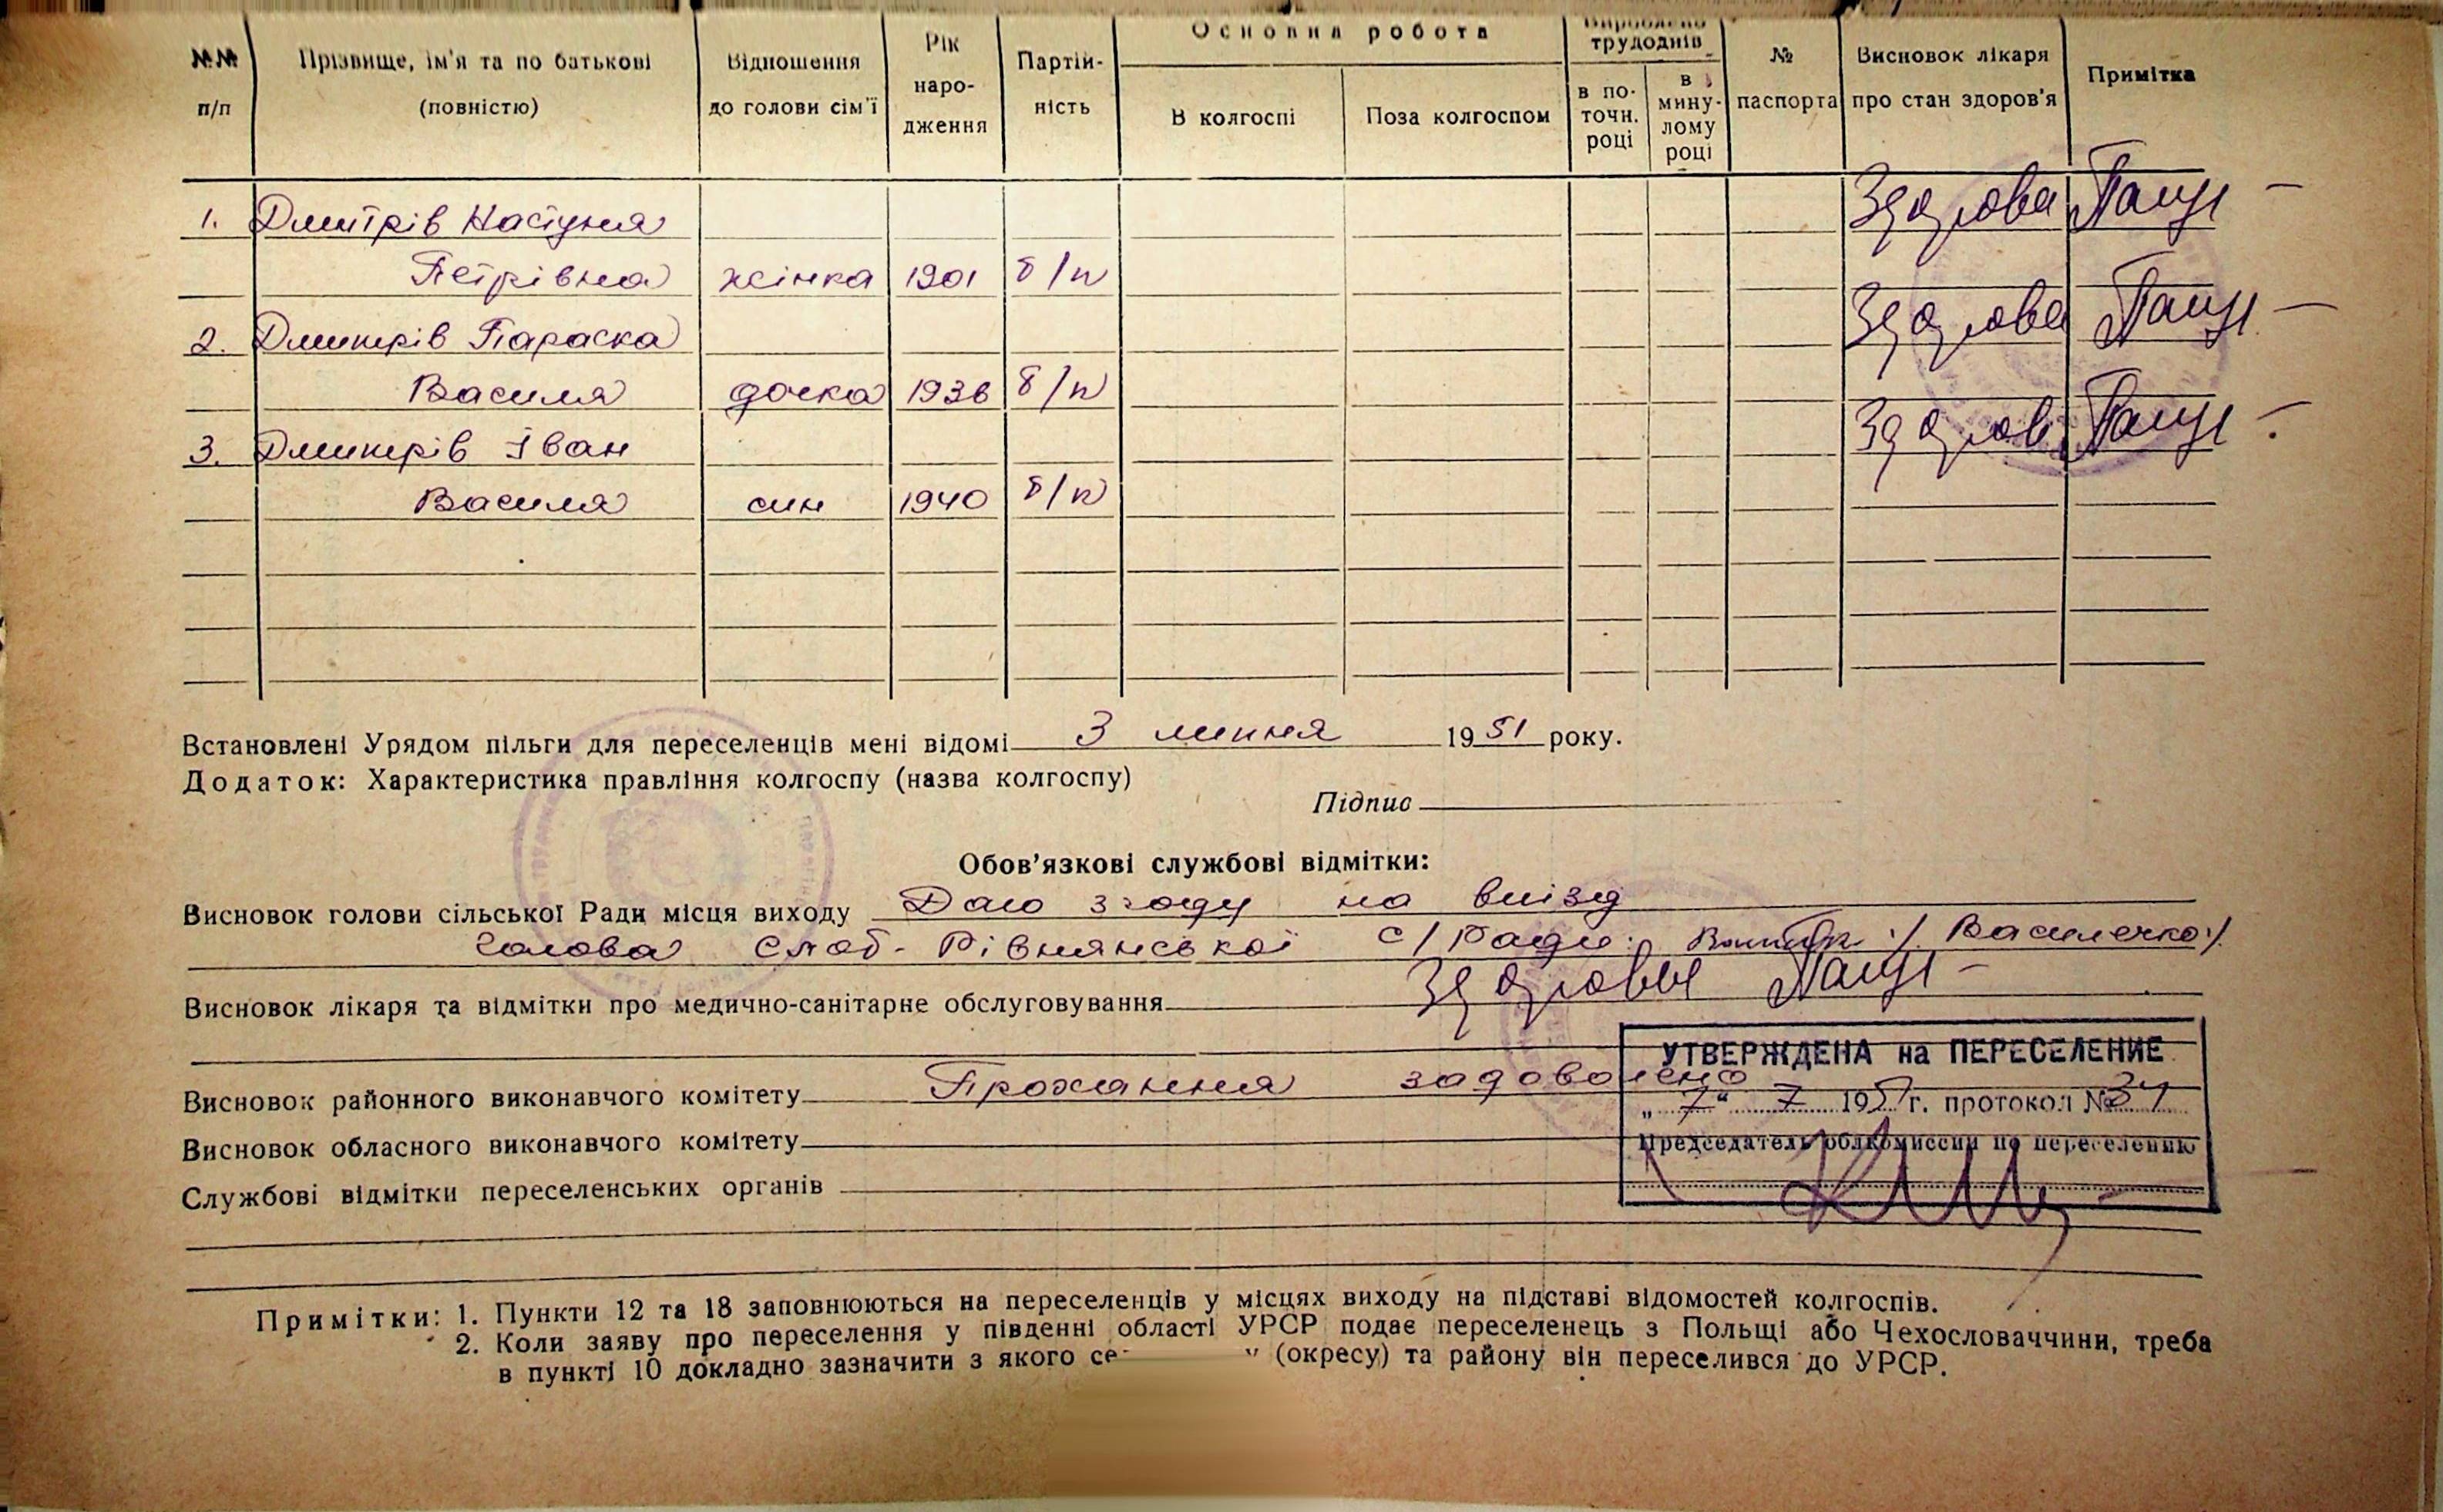 №№ п/п | Прізвище, ім'я та по батькові (повністю) | Відношення до голови сім'ї | Рік народження | Партійність | Основна робота | Вироблено трудоднів | № паспорта | Висновок лікаря про стан здоров'я | Примітка
В колгоспі | Поза колгоспом | в поточн. році | в минулому році
1. Дмитрів Настуня Здорова
Петрівна жінка 1901 б/п
2. Дмитрів Параска Здорова
Василя дочка 1936 б/п
3. Дмитрів Іван Здоров
Василя син 1940 б/п
Встановлені Урядом пільги для переселенців мені відомі 3 липня 1951 року.
Додаток: Характеристика правління колгоспу (назва колгоспу)
Підпис
Обов'язкові службові відмітки:
Висновок голови сільської Ради місця виходу Даю згоду на виїзд
Голова Слоб-Рівнянської с/Ради: /Василечко/
Висновок лікаря та відмітки про медично-санітарне обслуговування Здоровы
УТВЕРЖДЕНА на ПЕРЕСЕЛЕНИЕ
Висновок районного виконавчого комітету Прохання задоволено
„7" 7 1951г. протокол № 34
Висновок обласного виконавчого комітету
Председатель облкомиссии по переселению
Службові відмітки переселенських органів
Примітки: 1. Пункти 12 та 18 заповнюються на переселенців у місцях виходу на підставі відомостей колгоспів.
2. Коли заяву про переселення у південні області УРСР подає переселенець з Польщі або Чехословаччини, треба
в пункті 10 докладно зазначити з якого (окресу) та району він переселився до УРСР.